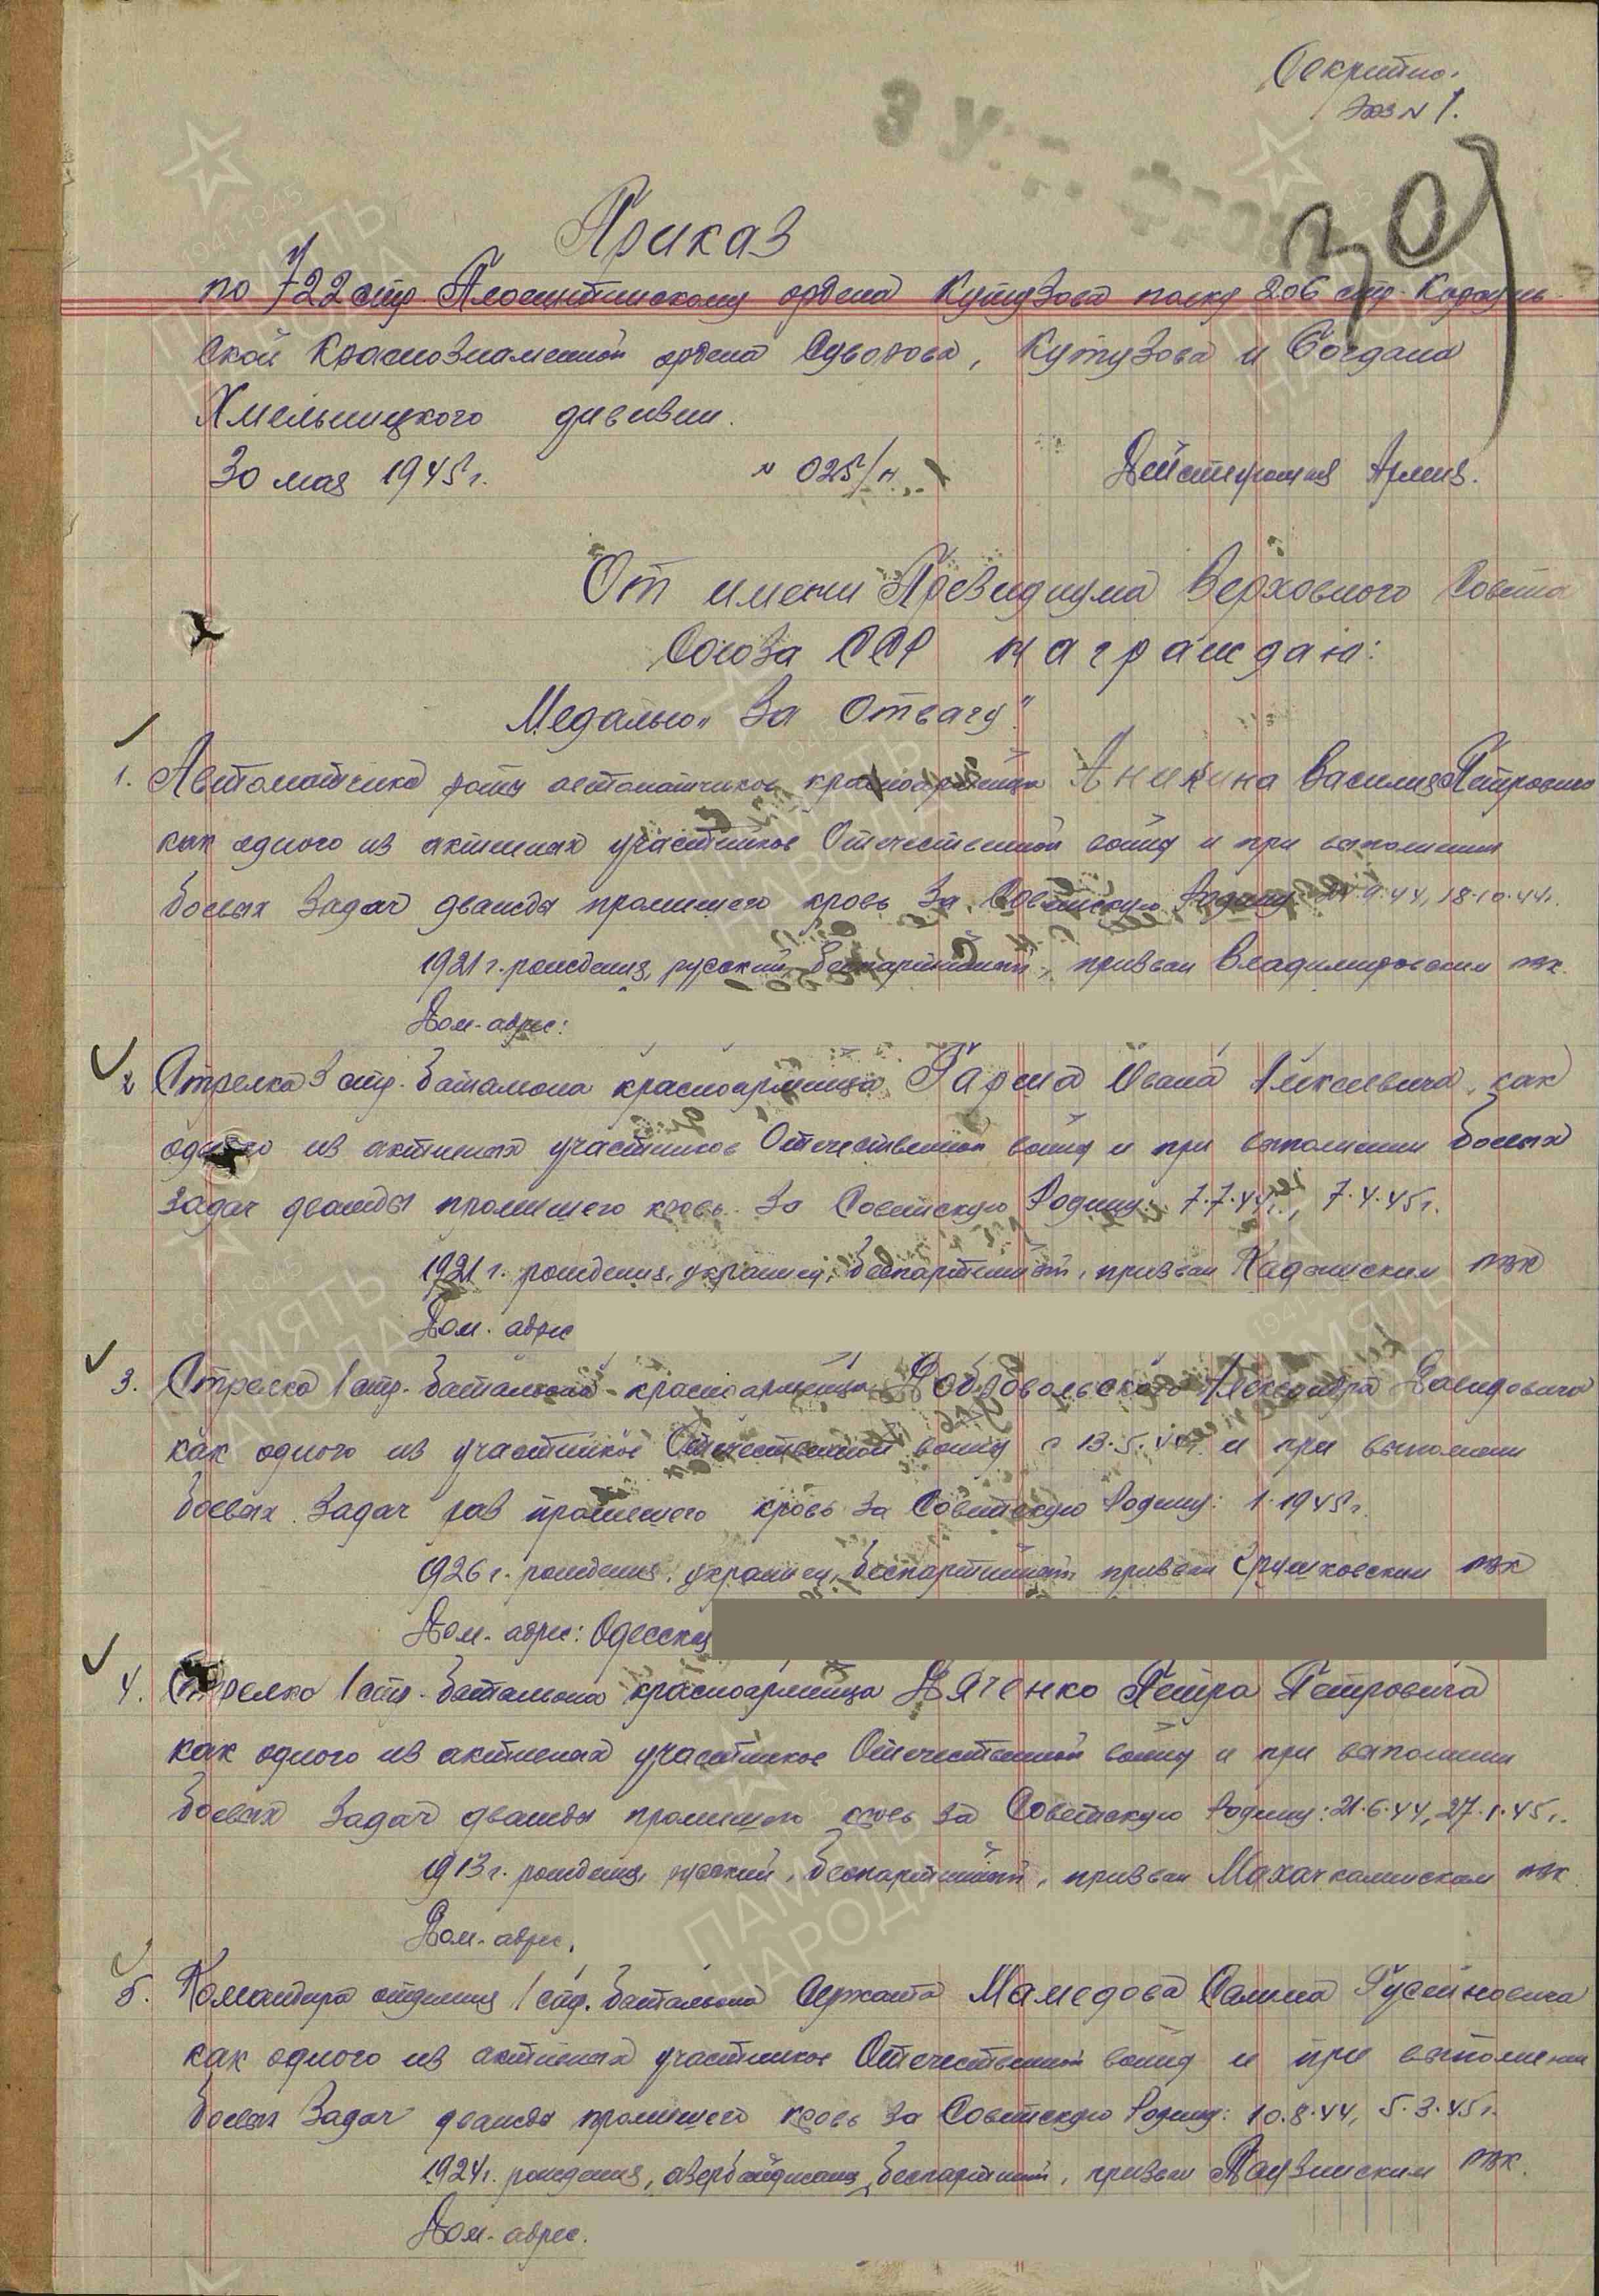 Секретно.
Экз № 1.
30
Приказ
по 722 стр. Плоештинскому ордена Кутузова полку 206 стр. Корсунь-
ской Краснознаменной ордена Суворова, Кутузова и Богдана
Хмельницкого дивизии.
30 мая 1945 г. № 025/н Действующая Армия.
От имени Президиума Верховного Совета
Союза ССР награждаю:
Медалью „За Отвагу"
1. Автоматчика роты автоматчиков красноармейца Аникина Василия Петровича
как одного из активных участников Отечественной войны и при выполнении
боевых задач дважды пролившего кровь за Советскую Родину: 9.44, 18.10.44г.
1921 г. рождения, русский, беспартийный, призван Владимировским рвк.
Дом. адрес:
2 Стрелка 3 стр. батальона красноармейца Ивана Алексеевича, как
одного из активных участников Отечественной войны и при выполнении боевых
задач дважды пролившего кровь за Советскую Родину: 7.7.44г., 7.4.45г.
1921 г. рождения, украинец, беспартийный, призван рвк
Дом. адрес
3. Стрелка 1 стр. батальона красноармейца Добровольского Александра Давидовича
как одного из участников Отечественной войны с 13.5.44г. и при выполнении
боевых задач раз пролившего кровь за Советскую Родину: 1.1945г.
1926 г. рождения, украинец, беспартийный призван Грушковским рвк
Дом. адрес: Одесская
4. Стрелка 1 стр. батальона красноармейца Дяченко Петра Петровича
как одного из активных участников Отечественной войны и при выполнении
боевых задач дважды пролившего кровь за Советскую Родину: 21.6.44, 27.1.45г.
1913 г. рождения, русский, беспартийный, призван Махачкалинским рвк.
Дом. адрес.
5. Командира отделения 1 стр. батальона Сержанта Мамедова Салима Гусейновича
как одного из активных участников Отечественной войны и при выполнении
боевых задач дважды пролившего кровь за Советскую Родину: 10.8.44, 5.3.45г.
1924г. рождения, азербайджанец, беспартийный, призван Таузинским рвк.
Дом. адрес.